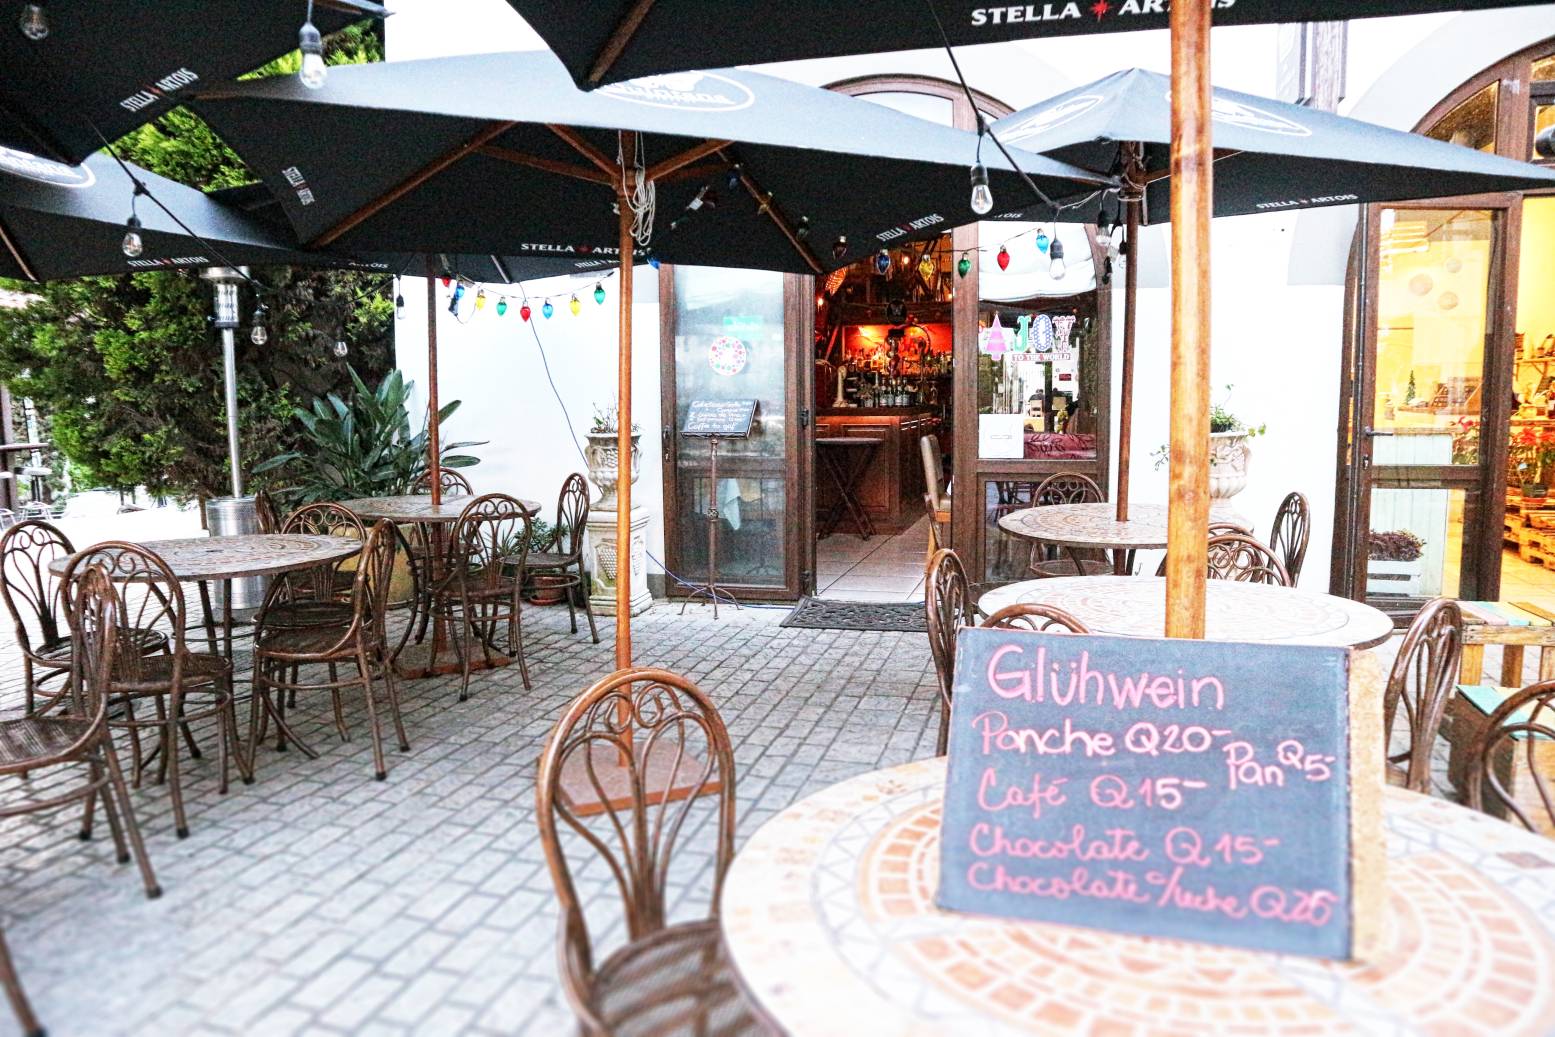 STELLA ARTOIS
STELLA ARTOIS
STELLA ARTOIS
STELLA ARTOIS
STELLA ARTOIS
STELLA ARTOIS
STELLA ARTOIS
JOY
TO THE WORLD
Glühwein
Ponche Q20-
Pan Q5-
Café Q15-
Chocolate Q15-
Chocolate c/leche Q20